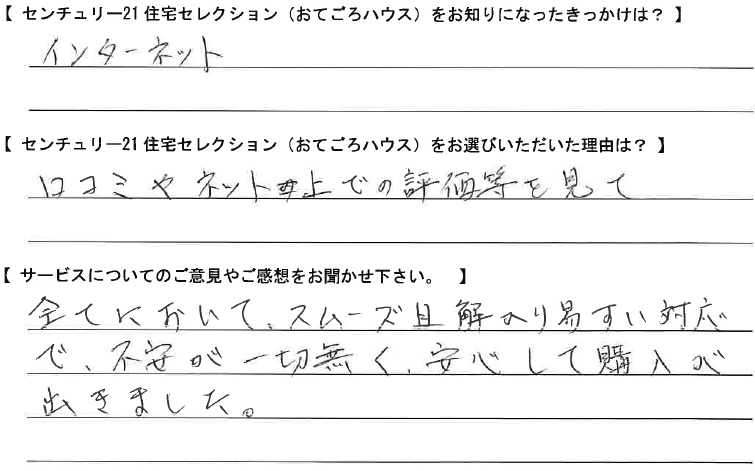 【 センチュリー21住宅セレクション（おてごろハウス）をお知りになったきっかけは？ 】
インターネット
【 センチュリー21住宅セレクション（おてごろハウス）をお選びいただいた理由は？ 】
口コミやネット上での評価等を見て
【 サービスについてのご意見やご感想をお聞かせ下さい。 】
全てにおいて、スムーズ且解り易すい対応
で、不安が一切無く、安心して購入が
出きました。